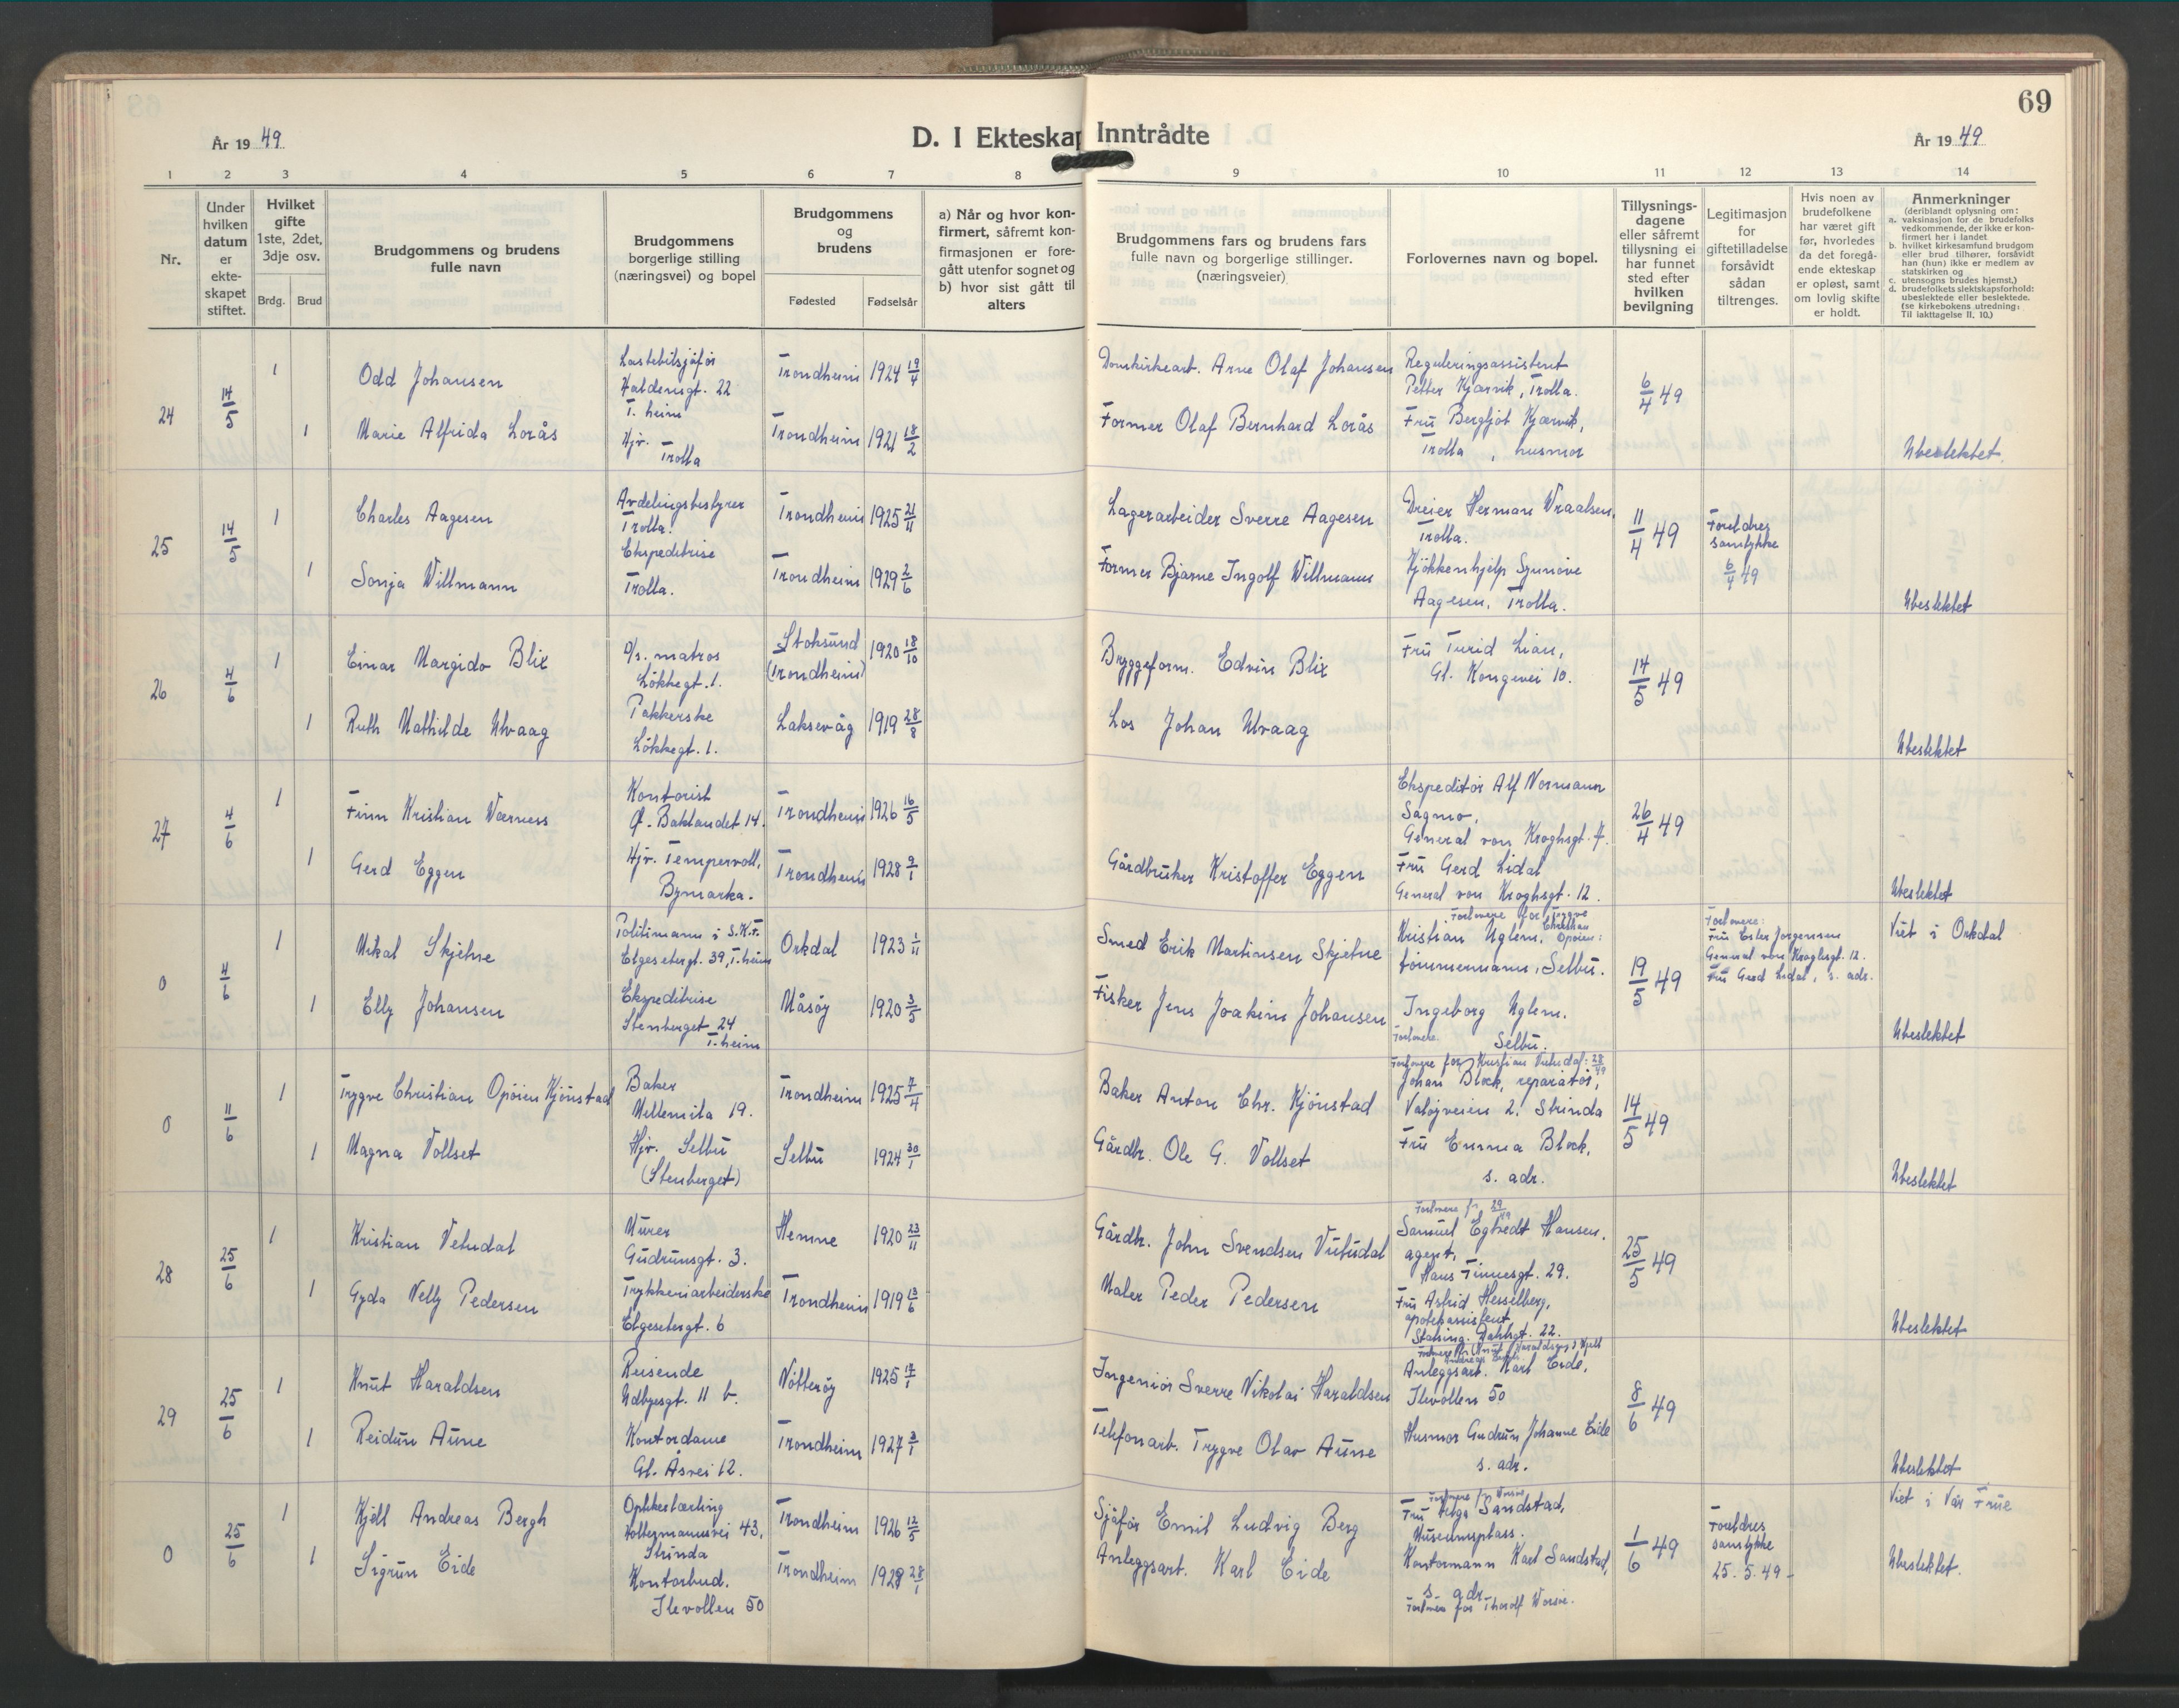 69
År 1949
D. I Ekteskap Inntrådte
År 1949
1 2 3 4 5 6 7 8 9 10 11 12 13 14
Nr.
Under hvilken datum er ekte-skapet stiftet.
Hvilket gifte 1ste, 2det, 3dje osv.
Brdg. Brud
Brudgommens og brudens fulle navn
Brudgommens borgerlige stilling (næringsvei) og bopel
Brudgommens og brudens
Fødested Fødselsår
a) Når og hvor kon-
firmert, såfremt kon-
firmasjonen er fore-
gått utenfor sognet og
b) hvor sist gått til
alters
Brudgommens fars og brudens fars
fulle navn og borgerlige stillinger.
(næringsveier)
Forlovernes navn og bopel.
Tillysnings-
dagene
eller såfremt
tillysning ei
har funnet
sted efter
hvilken
bevilgning
Legitimasjon
for
giftetilladelse
forsåvidt
sådan
tiltrenges.
Hvis noen av
brudefolkene
har været gift
før, hvorledes
da det foregå-
ende ekteskap
er opløst, samt
om lovlig skifte
er holdt.
Anmerkninger
(deriblandt oplysning om:
a. vaksinasjon for de brudefolks
vedkommende, der ikke er kon-
firmert her i landet
b. hvilket kirkesamfund brudgom
eller brud tilhører, forsåvidt
han (hun) ikke er medlem av
statskirken og
c. utensogns brudes hjemst.)
d. brudefolkets slektskapsforhold:
ubeslektede eller beslektede.
(se kirkebokens utredning:
Til iakttagelse II. 10.)
24 14/5
1 Odd Johansen
Lastebilsjåfør
Haldensgt. 22
T. heim
Trondheim 1924 19/4
Domkirkearb. Arne Olaf Johansen
Reguleringsassistent
Petter Kjærvik, Trolla.
6/4 49
1 Marie Alfrida Lorås
Hjv. Trolla
Trondheim 1921 18/2
Former Olaf Bernhard Lorås
Fru Bergljot Kjærvik,
Trolla, husmor
Ubeslektet.
25 14/5
1 Charles Aagesen
Avdelingsbestyrer
Trolla.
Trondheim 1925 21/11
Lagerarbeider Sverre Aagesen
Dreier Herman Vraalsen,
Trolla.
11/4 49
Foreldres
samtykke
6/4 49
1 Sonja Willmann
Ekspeditrise
Trolla.
Trondheim 1929 2/6
Former Bjarne Ingolf Willmann
Kjøkkenhjelp Synnøve
Aagesen, Trolla.
Ubeslektet
26 4/6
1 Einar Margido Blix
matros
Løkkegt. 1.
Stoksund
(Trondheim)
1920 18/10
Bryggeform. Edvin Blix
Fru Turid Lian,
Gl. Kongevei 10.
14/5 49
1 Ruth Mathilde Ulvaag
Pakkerske
Løkkegt. 1.
Laksevåg 1919 28/8
Los Johan Ulvaag
Ubeslektet
27 4/6
1 Finn Kristian Værness
Kontorist
Ø. Baklandet 14.
Trondheim 1926 16/5
Ekspeditør Alf Normann
Sagmo,
General von Kroghsgt. 7.
26/4 49
1 Gerd Eggen
Hjv. Tempervoll,
Bymarka.
Trondheim 1928 9/1
Gårdbruker Kristoffer Eggen
Fru Gerd Lidal
General von Kroghsgt. 12.
Ubeslektet
0 4/6
1 Mikal Skjetne
Politimann i S.K.T.
Elgesetergt. 39, T. heim
Orkdal 1923 1/11
Smed Erik Martinsen Skjetne
Forlovere for Trygve
Christian
Opøien:
Kristian Uglem,
tømmermann, Selbu.
19/5 49
Forlovere:
Fru Ester Jørgensen
General von Kroghsgt. 12.
Fru Gerd Lidal, s. adr.
Viet i Orkdal
1 Elly Johansen
Ekspeditrise
Stenberget 24
T. heim
Måsøy 1920 3/5
Fisker Jens Joakim Johansen
Ingeborg Uglem.
Selbu.
Forlovere
Ubeslektet
0 11/6
1 Trygve Christian Opøien Kjønstad
Baker
Mellemila 19.
Trondheim 1925 7/4
Baker Anton Chr. Kjønstad
Forlovere for Kristian Vetudal: 28/49
Johan Block, reparatør,
Valøyveien 2. Strinda
14/5 49
1 Magna Vollset
Hjv. Selbu
(Stenberget)
Selbu 1924 30/1
Gårdbr. Ole G. Vollset
Fru Emma Block,
s. adr.
Ubeslektet
28 25/6
1 Kristian Vetudal
Murer
Gudrunsgt. 3.
Hemne 1920 23/11
Gårdbr. John Svendsen Vutudal
Forlovere fr. 29/49
Samuel Egtvedt Hansen,
agent,
Hans Finnesgt. 29.
25/5 49
1 Gyda Nelly Pedersen
Trykkeriarbeiderske
Elgesetergt. 6
Trondheim 1919 13/6
Maler Peder Pedersen
Fru Astrid Hesselberg,
apotekassistent,
Stating. Dahlsgt. 22.
Ubeslektet
29 25/6
1 Knut Haraldsen
Reisende
Udbyesgt. 11 b.
Nøtterøy 1925 17/1
Ingeniør Sverre Nikolai Haraldsen
Anleggsarb. Karl Eide,
Ilevollen 50
8/6 49
1 Reidun Aune
Kontordame
Gl. Åsvei 12.
Trondheim 1927 3/1
Telefonarb. Trygve Olav Aune
Husmor Gudrun Johanne Eide
s. adr.
Ubeslektet
0 25/6
1 Kjell Andreas Bergh
Optikerlærling
43,
Strinda
Trondheim 1926 12/5
Sjåfør Emil Ludvig Berg
Fru Helga Sandstad,
Museumsplass.
1/6 49
Foreldres
samtykke
25.5.49
Viet i Vår Frue
1 Sigrun Eide
Kontorbud.
Ilevollen 50
Trondheim 1928 28/1
Anleggsarb. Karl Eide
Kontormann Karl Sandstad,
s. adr.
Forlovere for Thorolf Worsø.
Ubeslektet.